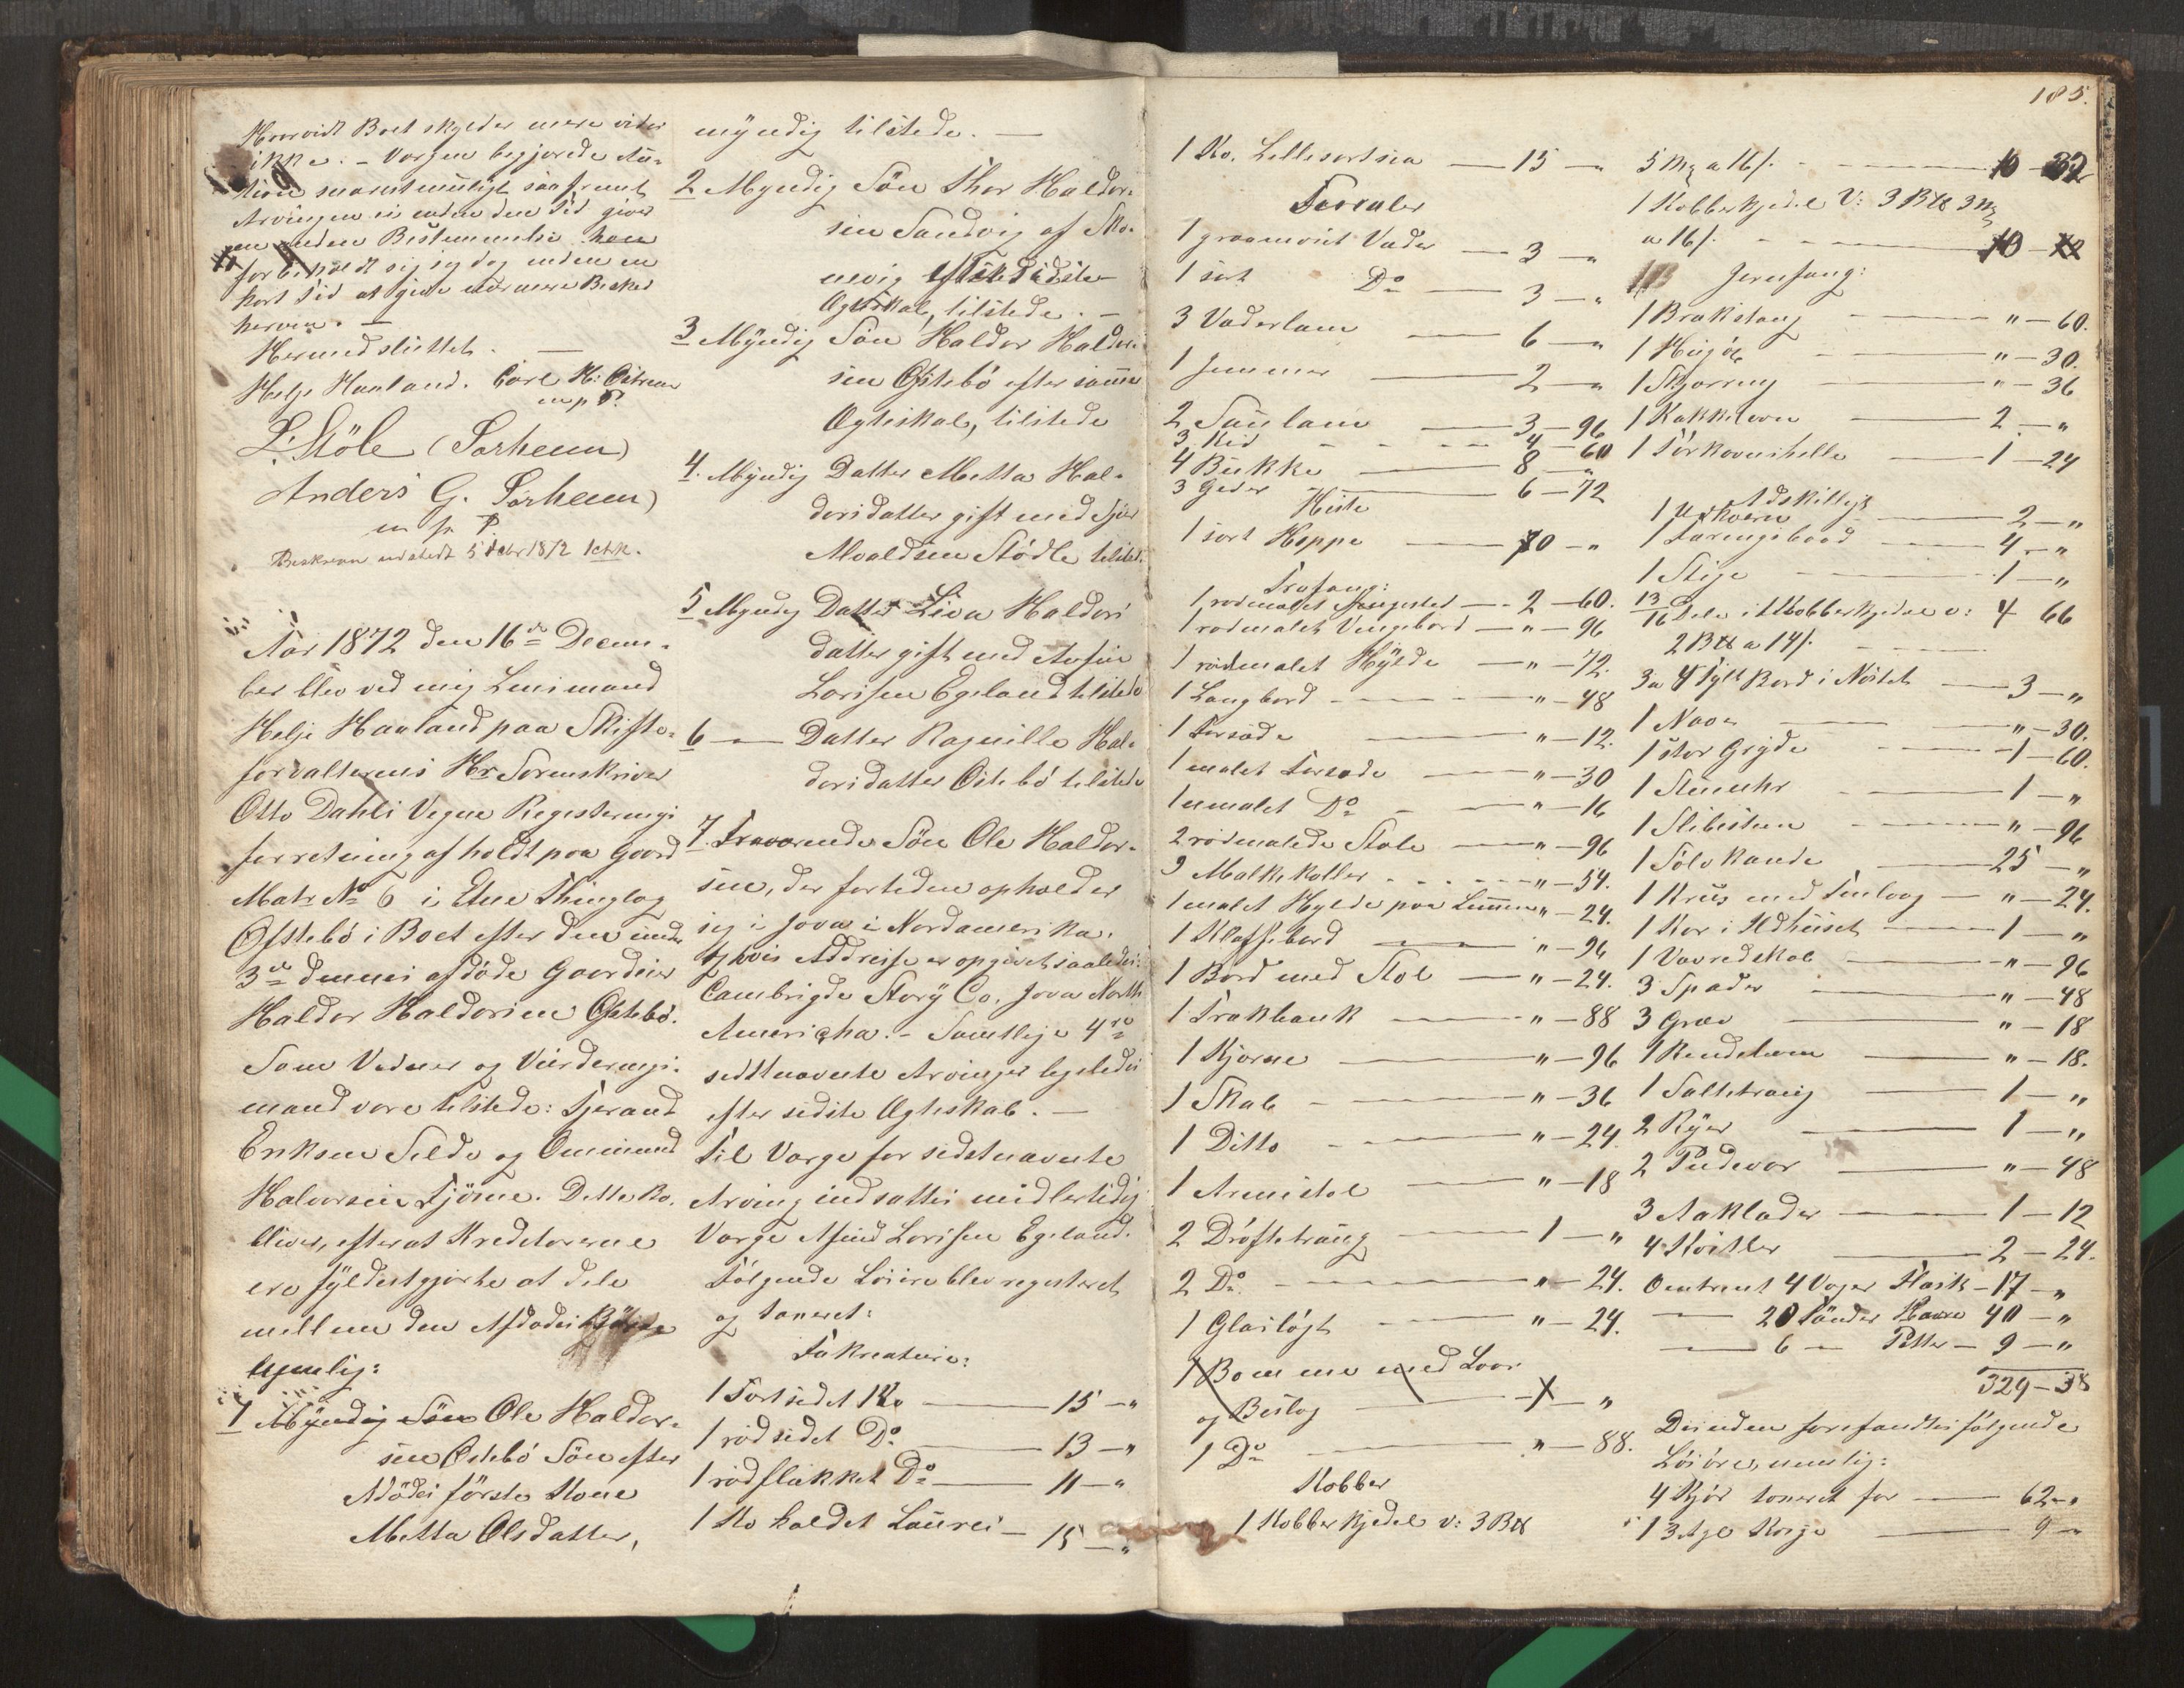 Hvorvidt Boet skylder mere vides
ikke. – Vorgen begjorede Au-
tion snarest muligt saafremt
Arvingen ei inden den Tid giver
en anden Bestemmelse hen
forbeholdt sig og dog inden en
kort Tid at give nærmere Besked
herom. –
Hermed sluttet. –
Helje Haaland. Carl H:
m p P.
L. Støle (Sørheim)
Anders G. Sørheim)
m p. P.
Beskreven udstedt 5 1872
Aar 1872 den 16de Decem-
ber blev ved mig Lensmand
Helje Haaland paa Skifte-
forvalterens Hr Sorenskriver
Otto Dahls Vegne Registerings
forretning afholdt paa Gaard
Matr No 6 i Etne Thinglag
Østebø i Boet efter den under
3de dennes afdøde Gaardeier
Haldor Haldorsen Østebø.
Som Vidner og Vurderings-
mænd vare tilstede: Tjerand
Eriksen Selde og Ommund
Halvorsen Tjørne. Dette Bo
bliver, efterat Kreditorerne
ere fyldestgjorte at dele
mellem den Afdødes Børn
nemlig:
1 Myndig Søn Ole Haldor-
sen Østebø Søn efter
Afdødes første Kone
Metta Olsdatter,
myndig tilstede. –
2 Myndig Søn Thor Haldor-
sen Sandvig af Sko-
nevig efter sidste
Ægteskab, tilstede. –
3 Myndig Søn Haldor Haldor-
sen Østebø efter samme
Ægteskab, tilstede
4. Myndig Datter Metta Hal-
dorsdatter gift med Sjur
Alvaldsen Stødle tilsted.
5 Myndig Datter Siva Haldors
datter gift med Amund
Larsen Egeland tilstede
6 — Datter Ragnille Hal-
dorsdatter Østebø tilstede
7. Fraværende Søn Ole Haldor-
sen, der fortiden opholder
sig i Jova i Nordamerika,
Hvis Addresse er opgivet saaledes:
Cambrigde Story Co. Jova North
Americha. – Samtlige 4re
sidstnævnte Arvinger ligeledes
efter sidste Ægteskab. –
Til Vorge for sidstnævnte
Arving indsattes midlertidig
Vorge Amund Larsen Egeland.
Følgende Løsøre blev registeret
og taxeret:
Fækreature:
1 Sortsidet Ko — 15 – "
1 rødsidet Do — 13 – "
1 rødflækket Do — 11 – "
1 Ko kaldet Laurei – 15 – "
185.
1 Ko. Lillesortsia — 15 – "
Fæmaler
1 graamoset Væder — 3 – "
1 sort Do — 3 – "
3 Væderlam — 6 – "
1 Gimmer — 2 – "
2 Saulam — 3 – 96
3 Kid — 4 – 60
4 Bukke — 8 – "
3 Geder — 6 – 72
Heste
1 sort Hoppe — 70 – "
Træfang:
1 rødmalet — 2 – 60.
1 rødmalet Vengebord — " – 96
1 rødmalet Hylde — " – 72.
1 Langbord — " – 48
1 Forsæde — " – 12.
1 malet Forsæde — " – 30
1 umalet Do — " – 16
2 rødmalede Stole — " – 96
9 Mælkekoller — " – 54.
1 malet Hylde paa Lemmen " – 24.
1 Klaffebord — " – 96
1 Bord med Stol — " – 24.
1 Trækbænk — " – 88
1 Kjærne — " – 96
1 Skab — " – 36
1 Ditto — " – 24.
1 Armstol — " – 18
2 Drøftetraug — 1 – "
2 Do. — " – 24.
1 Glasløgt — " – 24.
1 Bomme med Laar
og Beslag — 1 – "
1 Do — " – 88.
Kobber
1 Kobberkjedel v: 3 B℔
5 Mg a 16/. — 10 – 32
1 Kobberkjedel v: 3 B℔ 3 Mg
a 16/. — 10 – 12
Jernfang:
1 Brækstang — " – 60.
1 — " – 30.
1 Skjæring — " – 36
1 Kakkelovn — 2. – "
1 Tørkovnshelle — 1 – 24
Adskilligt
1 Uhrkværn — 2 – "
1 Færingsbaad — 4 – "
1 Stige — 1 – "
13/16 Dele i 1 Kobberkjedel v: 4 66
2 B℔ a 14/. —
3 a 4 Tylt Bord i Nøstet — 3 – "
1 Naver — " – 30.
1 stor Gryde — 1 – 60.
1 Stueuhr — 1 – "
1 Slibesteen — " – 96
1 Sølvkande — 25 – "
1 Krus med Tinlaag — " – 24.
1 Kar i Ildhuset — 1 – "
1 Vævredskab — " – 96
3 Spader — " – 48
3 Grev — " – 18
1 Rendelum — " – 18.
1 Saltetraug — 1 – "
2 Ryer — 1 – "
2 Pudevar — " – 48
3 Aaklæder — 1 – 12
4 Kvitler — 2 – 24.
Omtrent 4 Voger Flæsk – 17 – "
— 20 Tønder Havre 40 – "
— 6 – Potter – 9 – "
329 – 38
Desuden forefandtes følgende
Løsøre, nemlig:
4 Kjør taxeret for — 62 – "
1 3 Aars Kvige — 9 – "